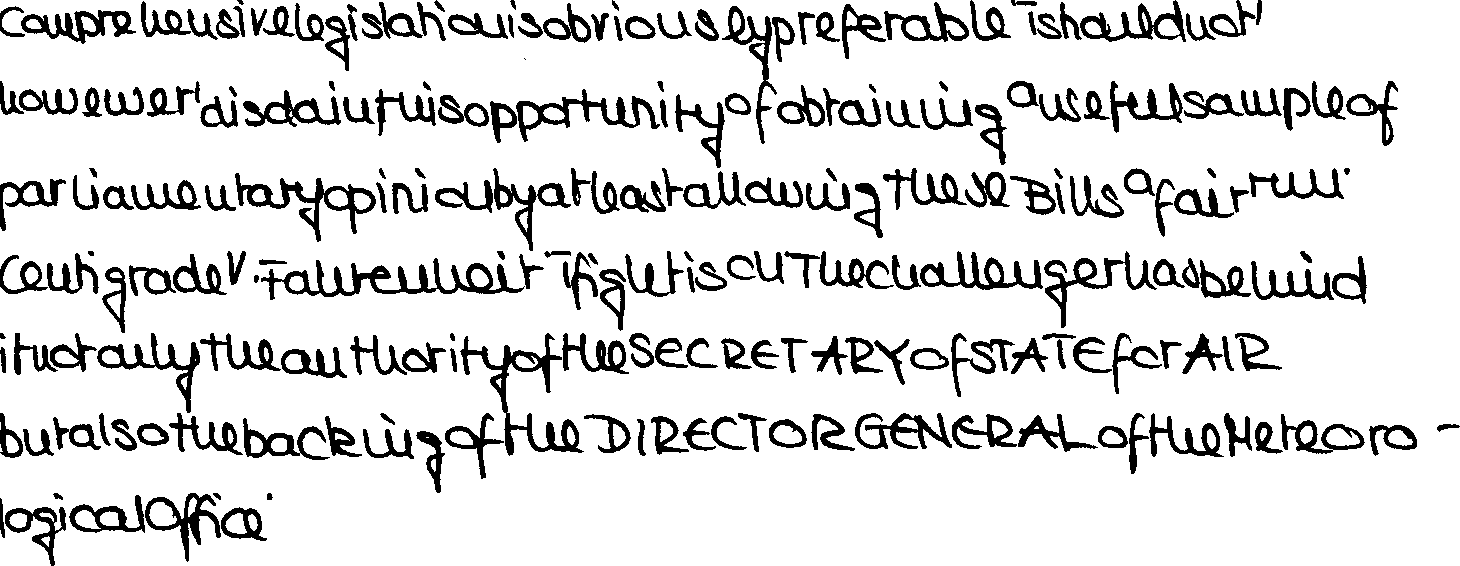 Comprehensive legislation is obviously preferable. I should not,
however, disdain this opportunity of obtaining a useful sample of
parliamentary opinion by at least allowing these Bills a fair run.
Centigrade v. Fahrenheit. Fight is on. The challenger has behind
it not only the authority of the SECRETARY of STATE for AIR
but also the backing of the DIRECTOR GENERAL of the Meteoro-
logical Office.